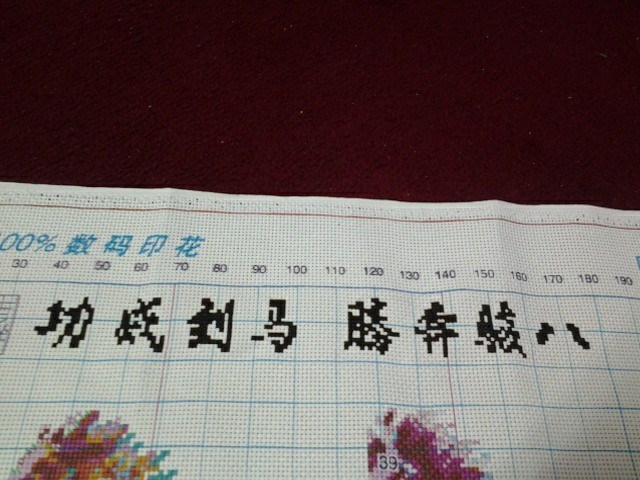 00% 数码印花
30 40 50 60 70 80 90 100 110 120 130 140 150 160 170 180 190
功成到马 腾奔骏八
39